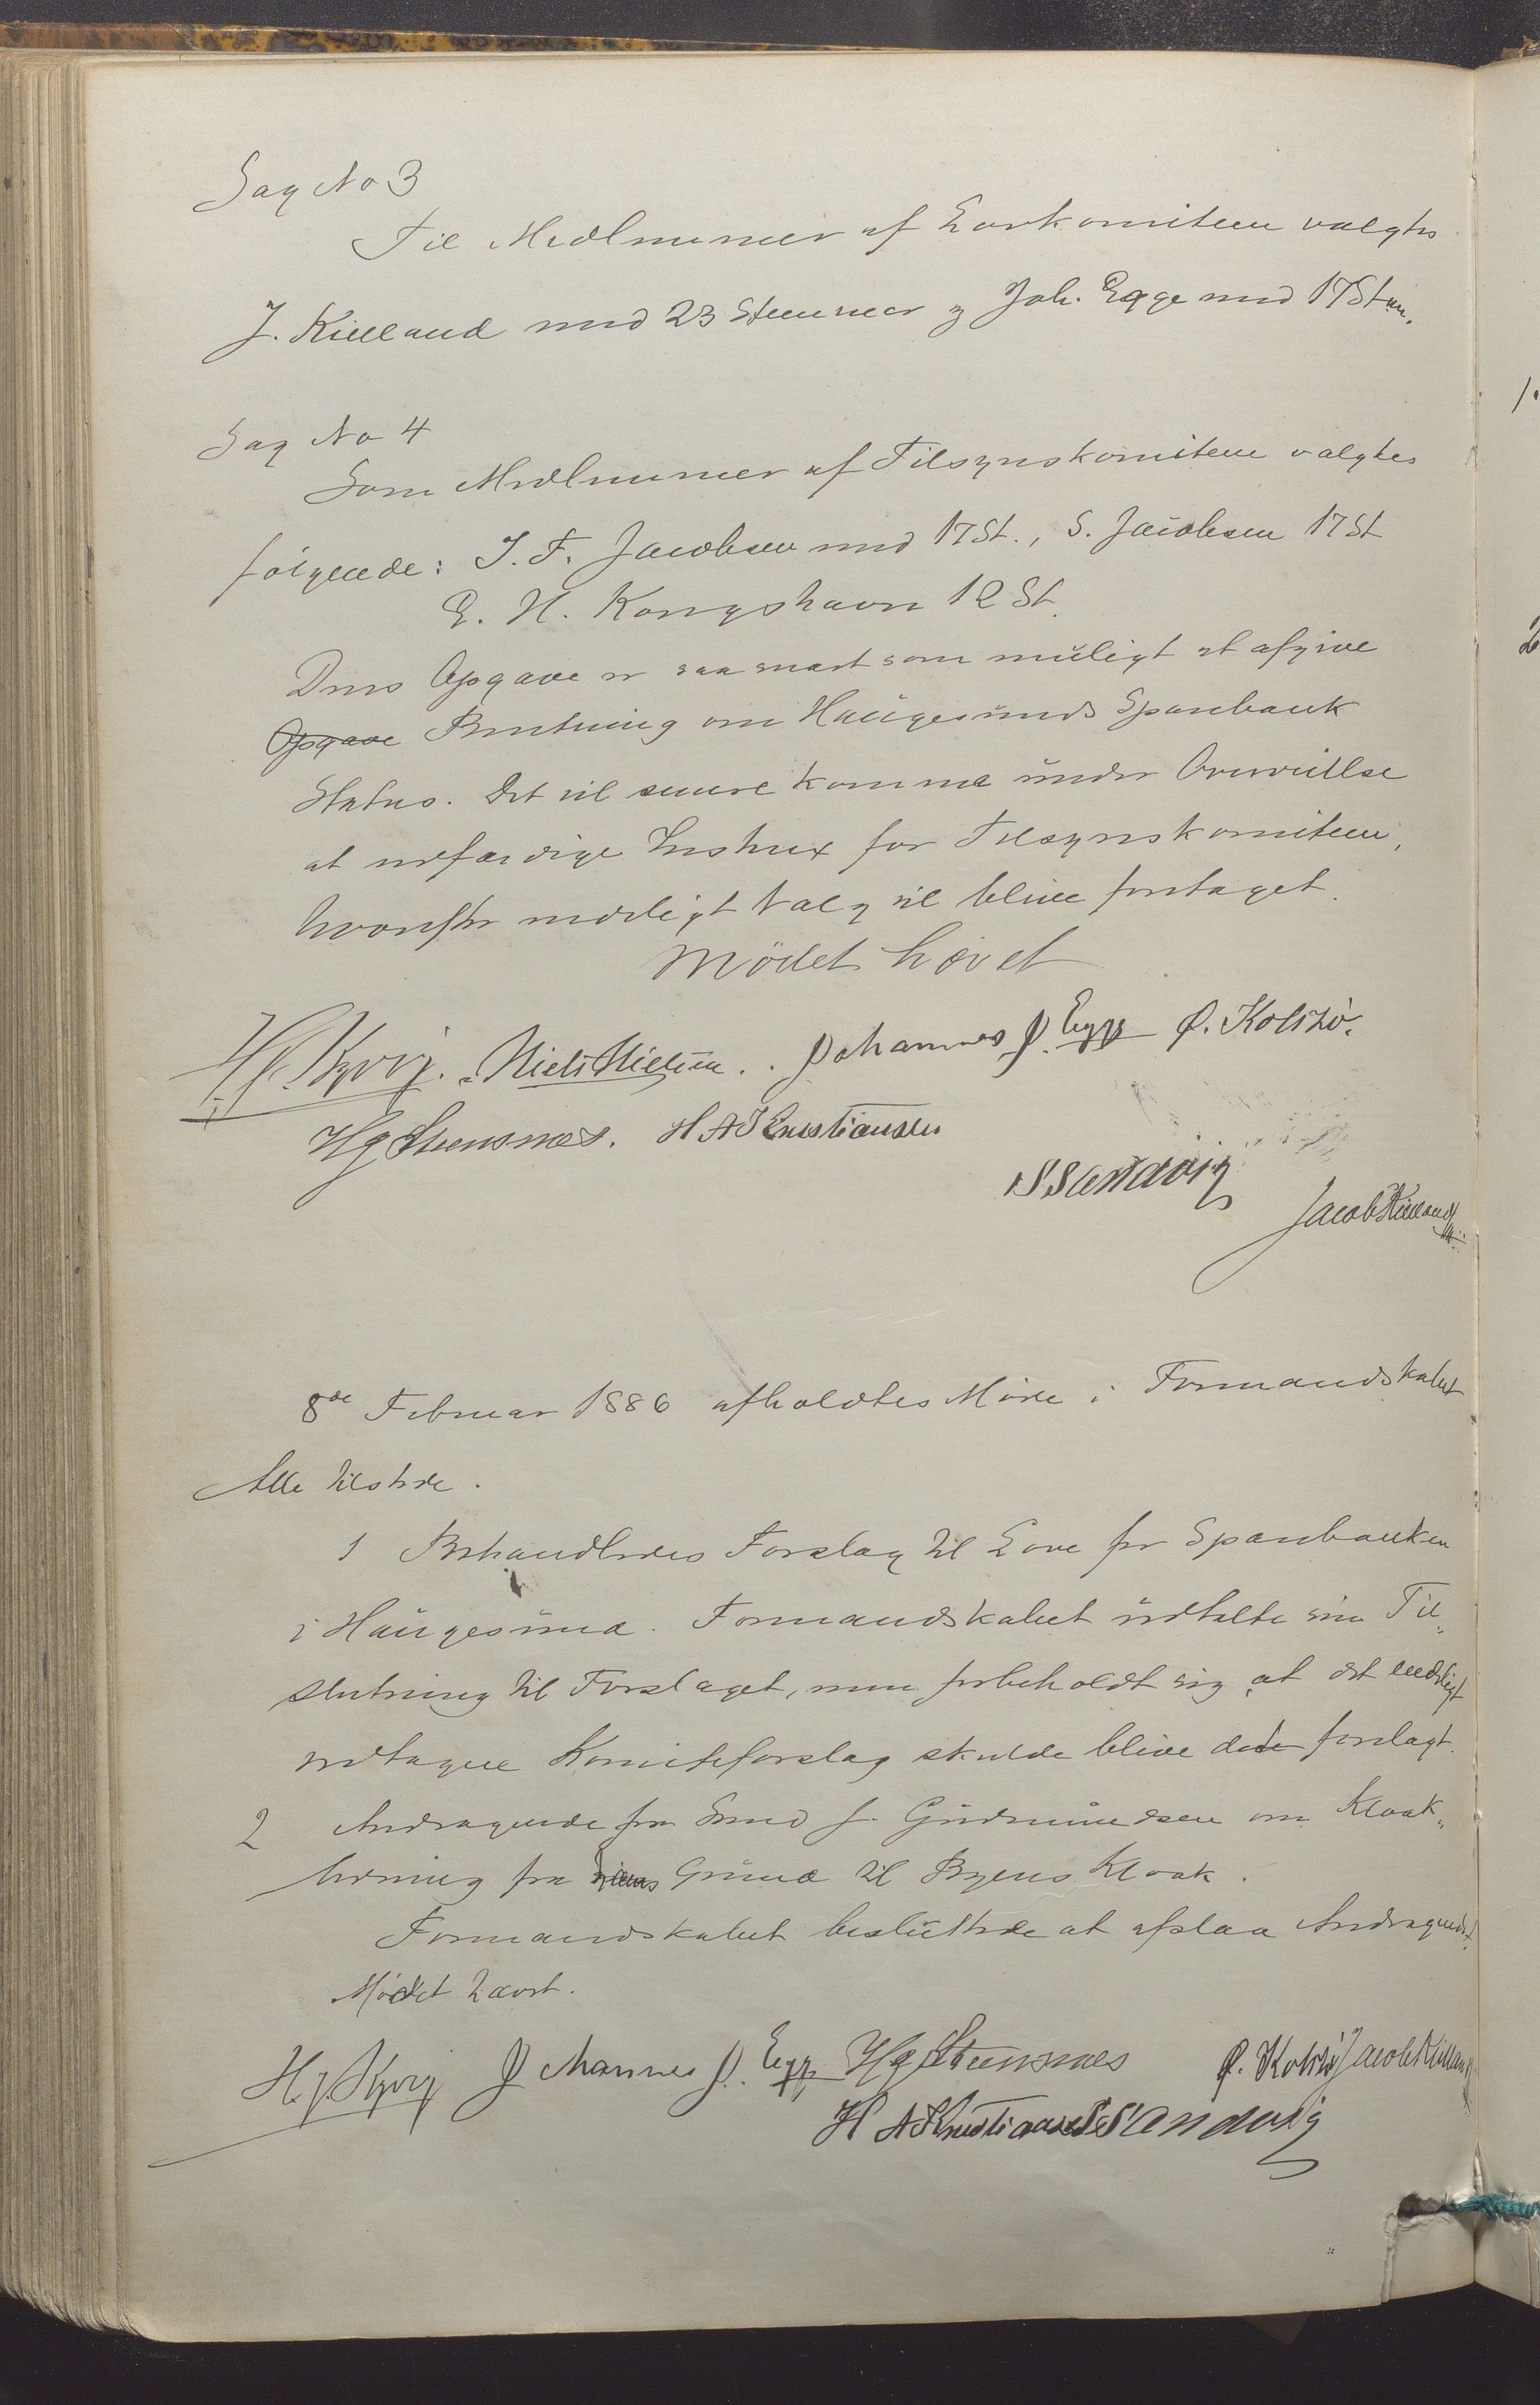 Sag No 3
Til Medlemmer af Lovkomiteen valgtes
J. Kielland med 23 Stemmer og Joh. Egge med 17 Stem.
Sag No 4
Som Medlemmer af Tilsynskomiteen valgtes
følgende: J. F. Jacobsen med 17 St., S. Jacobsen 17 St
E. H. Kongshavn 12 St.
Dens Opgave er saa snart som muligt at afgive
Opgave Beretning om Haugesunds Sparebank
Status. Det vil senere komme under Overveielse
at udfærdige Instrux for Tilsynskomiteen,
hvorefter endeligt Valg vil blive foretaget.
Mödet hævet
H. J. Kyvig. Niels Nielsen. Johannes J. Egge Ø. Kolstø.
Hg Steensnæs. H A Kristiansen
S Sandvig
Jacob Kielland
8de Februar 1886 afholdtes Møde i Formandskabet
Alle tilstede.
1 Behandledes Forslag til Love for Sparebanken
i Haugesund. Formandskabet udtalte sin Til„
slutning til Forslaget, men forbeholdt sig, at det endeligt
vedtagne Komiteforslag skulde blive dete forelagt.
2 Andragende fra Smed J. Gudmundsen om Kloak„
ledning fra hans Grund til Byens Kloak.
Formandskabet besluttede at afslaa Andragendet.
Mødet hævet.
H. J. Kyvig Johannes J. Egge Hg Steensnæs Ø. Kolstø Jacob Kielland
H A Kristiansen S Sandvig